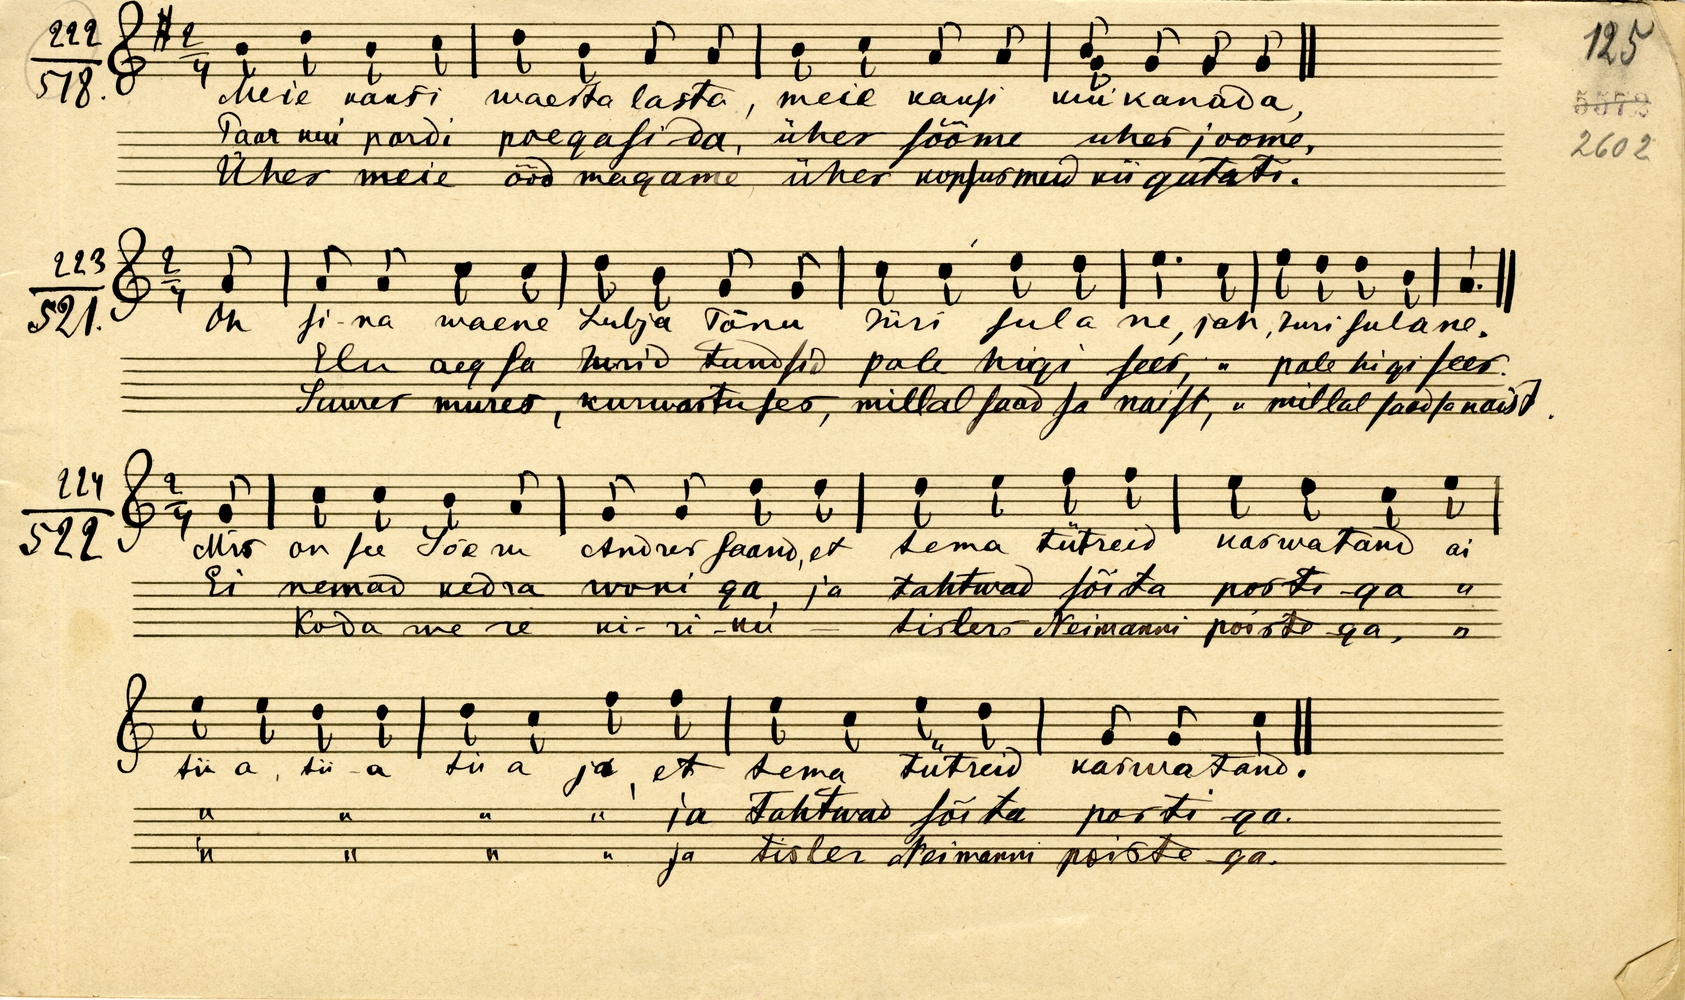 222
518.
125
5579
2602
2/4
Meie kaksi waesta lasta, meie kaksi kui kanada,
Paar kui pardi poegasi-da, ühes sööme uhes joome,
Ühes meie ööd magame, ühes kopsus meid kiigutati.
223
521.
2/4
Oh si-na waene Lubja Tõnu Jüri sula ne, jah, Juri sulane.
Elu aeg sa hurid tundsid pale higi sees, " pale higi sees.
Suures mures, kurwastuses, millal saad sa naist, " millal saad sa naist.
224
522
2/4
Mis on see Sõe ru Andres saand, et tema tütreid kaswatand ai
Ei nemad kedra woki ga, ja tahtwad sõita posti-ga "
Koda we re ki-ri-ku tislers Neimanni poiste-ga, "
tii a, tii-a tii a ja, et tema tütreid kaswatand.
" " " " ja tahtwad sõi ta pos ti ga.
" " " " ja tisler Neimanni poiste ga.